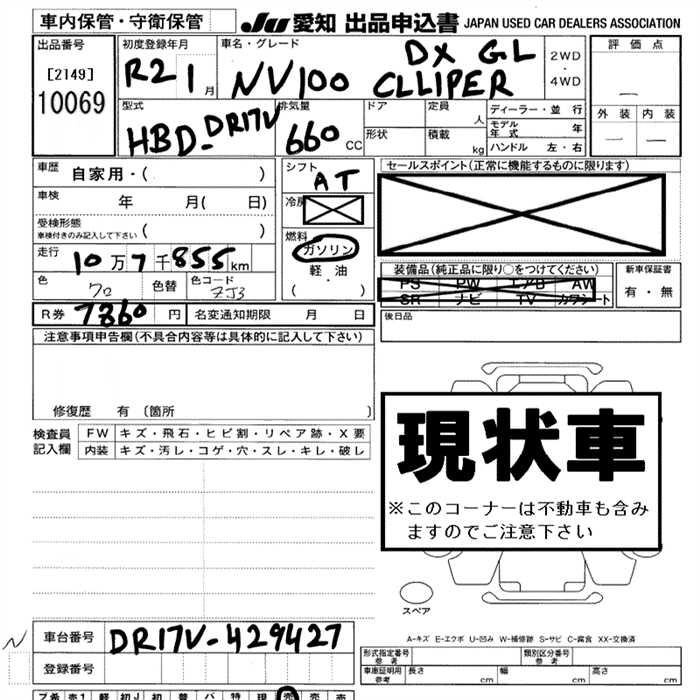 車内保管・守衛保管
JU 愛知 出品申込書 JAPAN USED CAR DEALERS ASSOCIATION
出品番号
[2149]
10069
初度登録年月
R2 1月
車名・グレード
DX GL
NV100 CLLIPER
2WD
・
4WD
評価点
―
外装 内装
― ―
型式
HBD-DR17V
排気量
660 CC
ドア
形状
定員 人
積載 kg
ディーラー・並行
モデル年式 年
ハンドル 左・右
車歴
自家用・( )
車検 年 月( 日)
受検形態
車検付きのみ記入して下さい ( )
走行
10万7千855km
色
クロ
色替
色コード
ZJ3
シフト
AT
冷房
燃料
ガソリン
軽・油
( )
セールスポイント(正常に機能するものに限ります)
装備品(純正品に限り○をつけてください)
PS PW エアB AW
SR ナビ TV カワシート
新車保証書
有・無
R券 7360円
名変通知期限 月 日
後日品
注意事項申告欄(不具合内容等は具体的に記入して下さい)
修復歴 有〔箇所 〕
検査員
記入欄
FW キズ・飛石・ヒビ割・リペア跡・X要
内装 キズ・汚レ・コゲ・穴・スレ・キレ・破レ
現状車
※このコーナーは不動車も含み
ますのでご注意下さい
スペア
A-キズ E-エクボ U-凹み W-補修跡 S-サビ C-腐食 XX-交換済
N
車台番号 DR17V-429427
登録番号
形式指定番号
参考
類別区分番号
参考
車庫証明用
参考
長さ 幅 高さ
cm cm cm